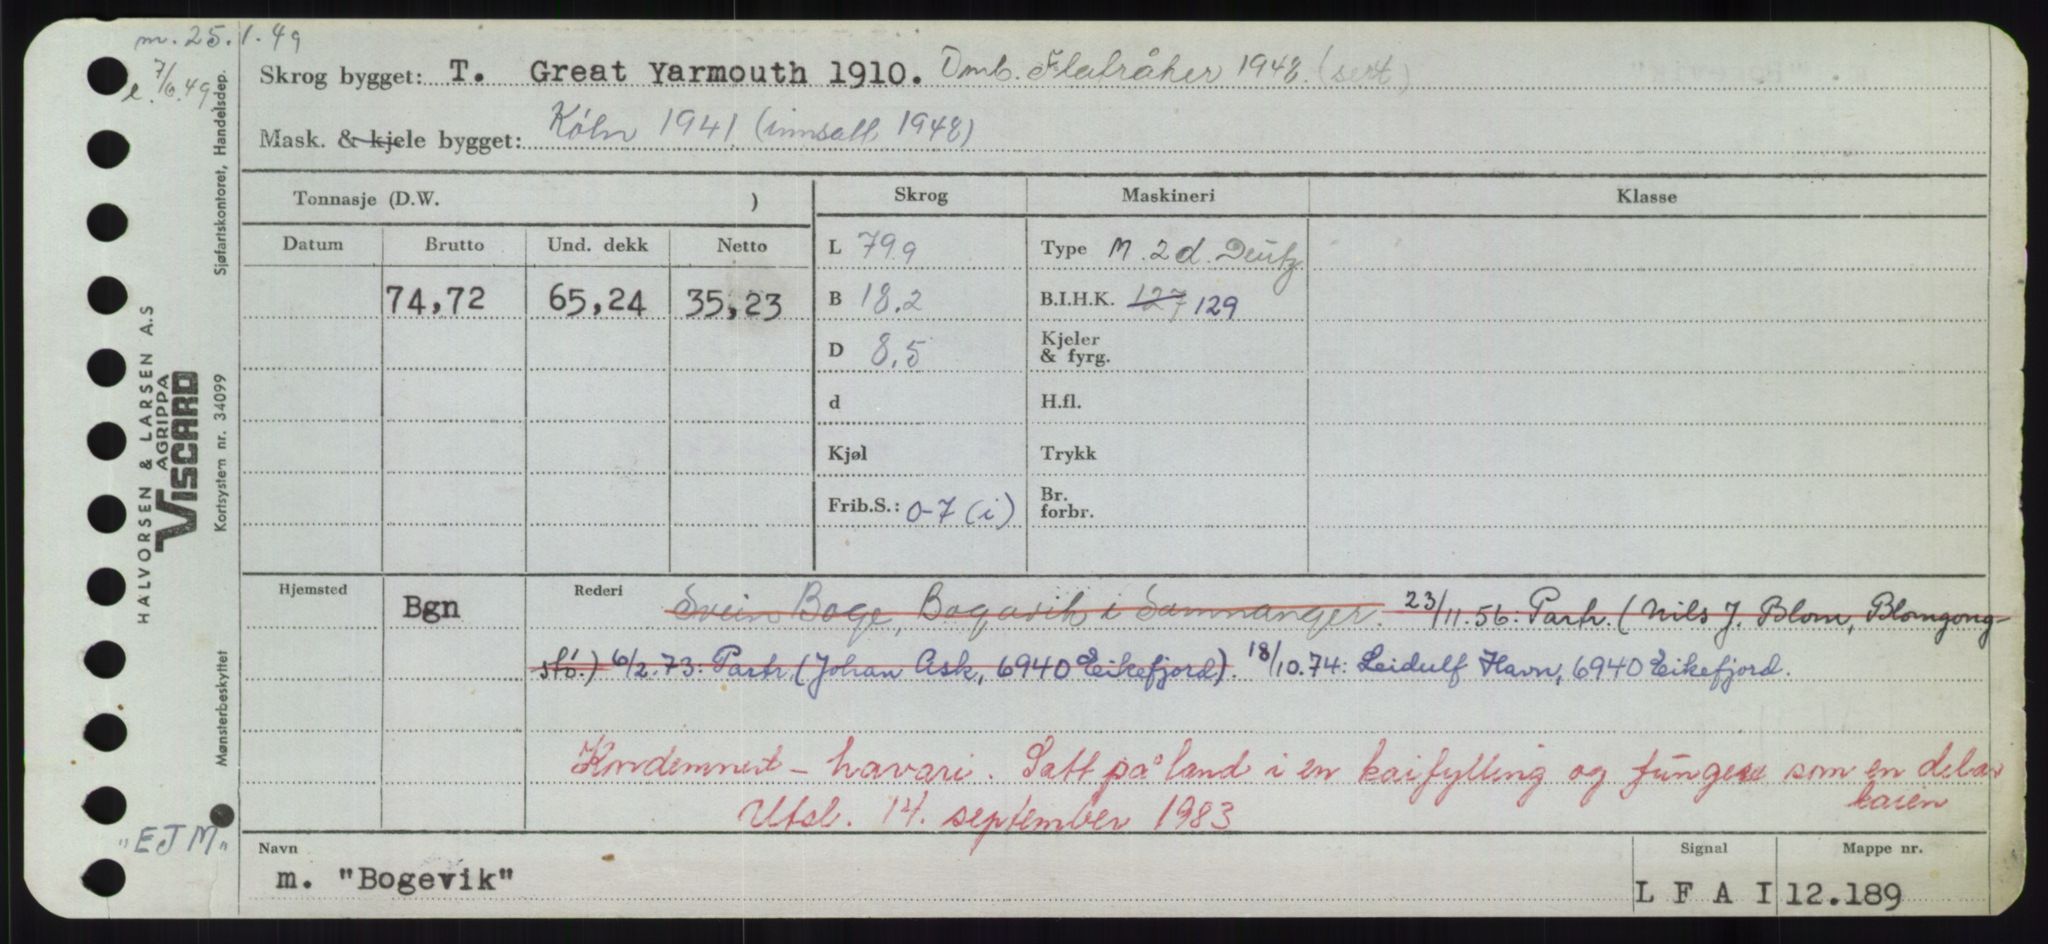 m. 25.1.49
e. 7/6.49
Skrog bygget: T. Great Yarmouth 1910. Omb. Flatråker 1948 (sert)
Mask. & kjele bygget: Köln 1941 (innsatt 1948)
Tonnasje (D.W. ) Skrog Maskineri Klasse
Datum Brutto Und. dekk Netto
L 79.9 Type M. 2 d. Deutz
74,72 65,24 35,23 B 18.2 B.I.H.K. 127 129
D 8,5 Kjeler & fyrg.
d H.fl.
Kjøl Trykk
Frib.S.: 0-7 (i) Br. forbr.
Hjemsted Bgn Rederi Svein Boge, Bogavik i Samnanger. 23/11.56: Partr. (Nils J. Blom, Blomgong-
stö.) 6/2.73: Partr. (Johan Ask, 6940 Eikefjord). 18/10.74: Leidulf Havn, 6940 Eikefjord.
Kondemnert - havari. Satt på land i en kaifylling og fungerer som en del av
kaien
Utsl. 14. september 1983
"EJM"
Navn Signal Mappe nr.
m. "Bogevik" L F A I 12.189
HALVORSEN & LARSEN A.S
AGRIPPA
VISCARD
Sjøfartskontoret, Handelsdep.
Kortsystem nr. 34099
Mønsterbeskyttet